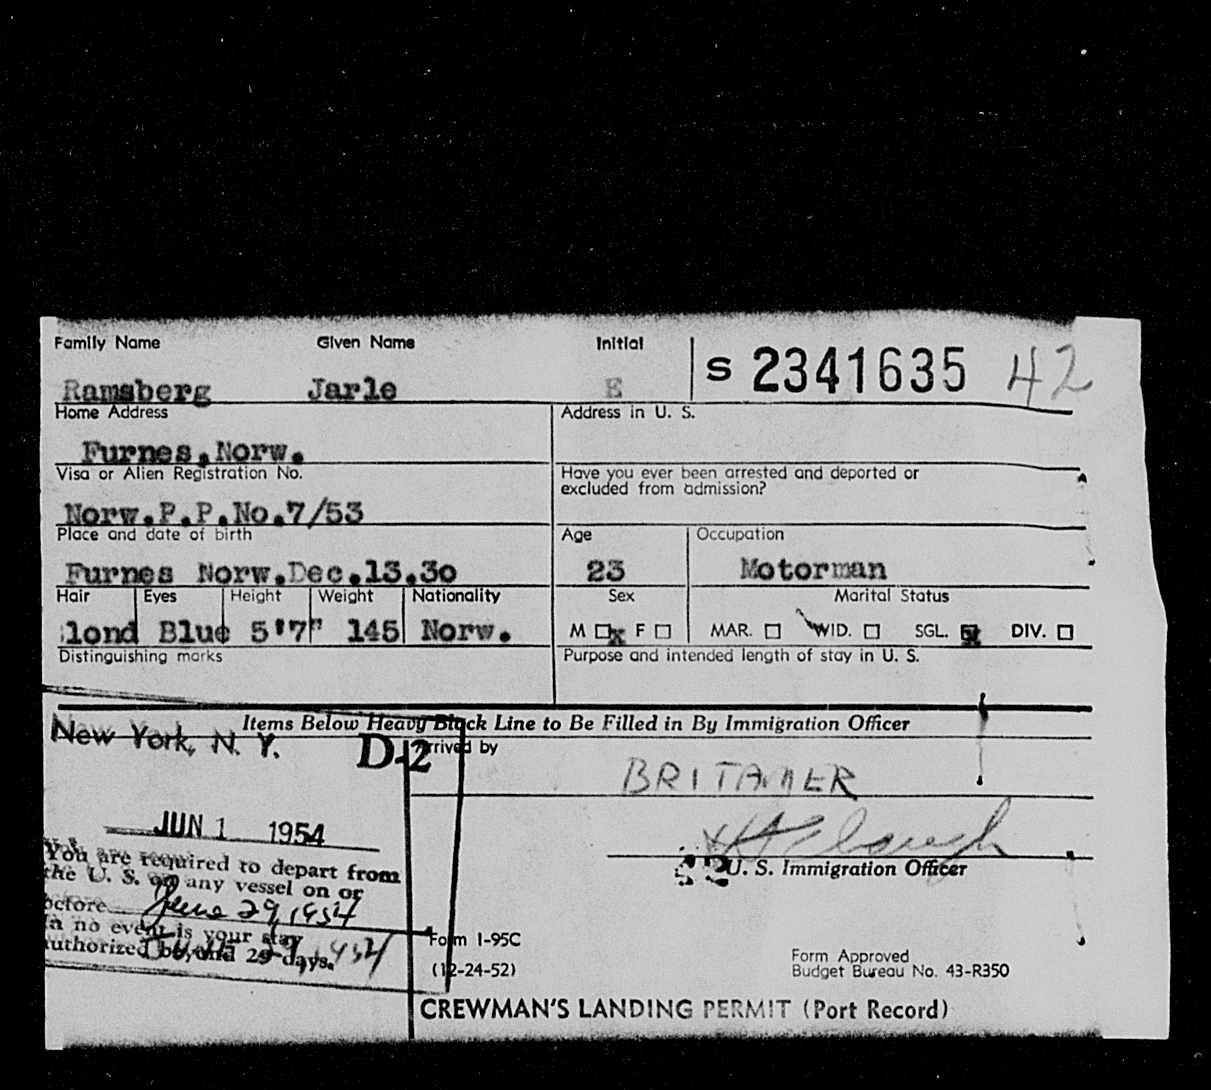 Family Name Given Name Initial S 2341635 42
Ramsberg Jarle E
Home Address Address in U. S.
Furnes, Norw.
Visa or Alien Registration No. Have you ever been arrested and deported or
excluded from admission?
Norw.P.P.No.7/53
Place and date of birth Age Occupation
Furnes Norw.Dec.13.30 23 Motorman
Hair Eyes Height Weight Nationality Sex Marital Status
lond Blue 5'7" 145 Norw. M x F MAR. WID. SGL. x DIV.
Distinguishing marks Purpose and intended length of stay in U. S.
Items Below Heavy Black Line to Be Filled in By Immigration Officer
New York, N. Y. D-2 Arrived by
BRITAMER
JUN 1 1954
You are required to depart from
the U. S. on any vessel on or
before June 29, 1954
In no event is your stay
authorized beyond 29 days.
U. S. Immigration Officer
Form I-95C
(12-24-52)
Form Approved
Budget Bureau No. 43-R350
CREWMAN'S LANDING PERMIT (Port Record)